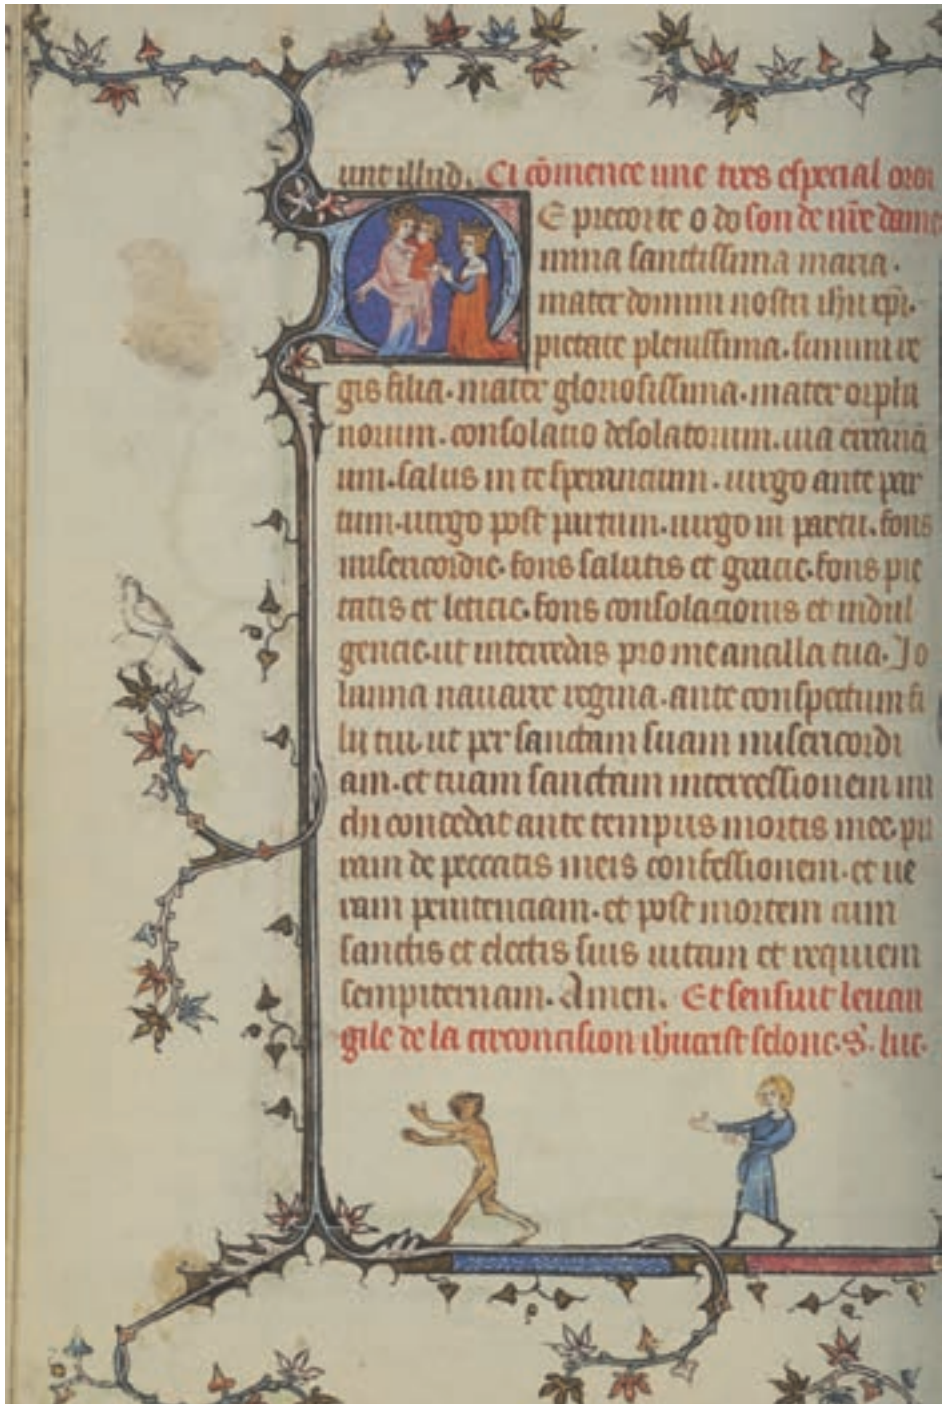 unt illud. Ci cõmence une tres especial oroi
E precor te o do son de nr̃e dame
mina sanctissima maria.
mater domini nostri ihũ xp̃i.
pietate plenissima. summi re
gis filia. mater gloriosissima. mater orpha
norum. consolatio desolatorum. uia erranci
um. salus in te sperancium. uirgo ante par
tum. uirgo post partum. uirgo in partu. fons
misericordie. fons salutis et gracie. fons pie
tatis et leticie. fons consolacionis et indul
gencie. ut intercedas pro me ancilla tua. Jo
hanna nauarre regina. ante conspectum fi
lij tui. ut per sanctam suam misericordi
am. et tuam sanctam intercessionem mi
chi concedat ante tempus mortis mee. pu
ram de peccatis meis confessionem. et ue
ram penitenciam. et post mortem cum
sanctis et electis suis uitam et requiem
sempiternam. Amen. Et sensuit leuan
gile de la circoncision ihũcrist selonc. S. luc.